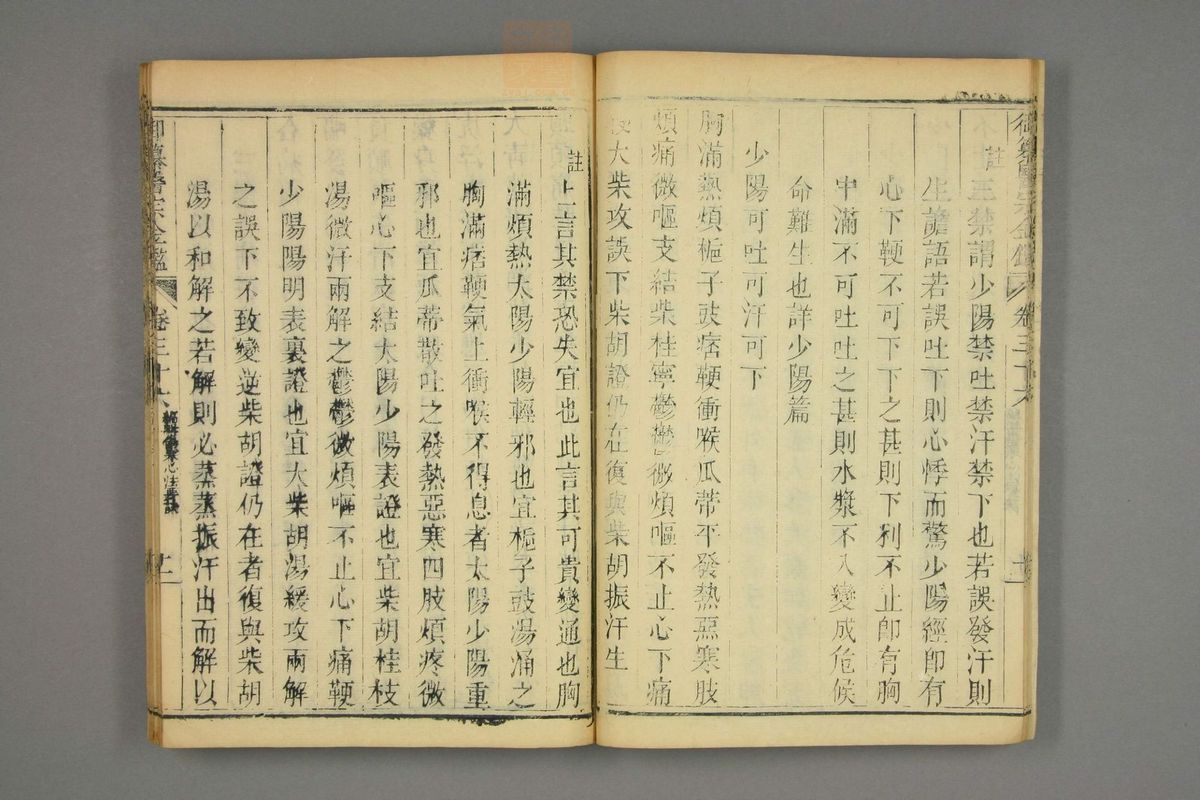 註三禁謂少陽禁吐禁汗禁下也若誤發汗則
生譫語若誤吐下則心悸而驚少陽經即有
心下鞕不可下下之甚則下利不止即有胸
中滿不可吐吐之甚則水漿不入變成危候
命難生也詳少陽篇
少陽可吐可汗可下
胸滿熱煩梔子豉痞鞕衝喉瓜蒂平發熱惡寒肢
煩痛微嘔支結柴桂寧鬱鬱微煩嘔不止心下痛
鞕大柴攻誤下柴胡證仍在復與柴胡振汗生
註上言其禁恐失宜也此言其可貴變通也胸
滿煩熱太陽少陽輕邪也宜梔子豉湯涌之
胸滿痞鞕氣上衝喉不得息者太陽少陽重
邪也宜瓜蒂散吐之發熱惡寒四肢煩疼微
嘔心下支結太陽少陽表證也宜柴胡桂枝
湯微汗兩解之鬱鬱微煩嘔不止心下痛鞕
少陽陽明表裏證也宜大柴胡湯緩攻兩解
之誤下不致變逆柴胡證仍在者復與柴胡
湯以和解之若解則必蒸蒸振汗出而解以
御纂醫宗金鑑
卷三十六
十一